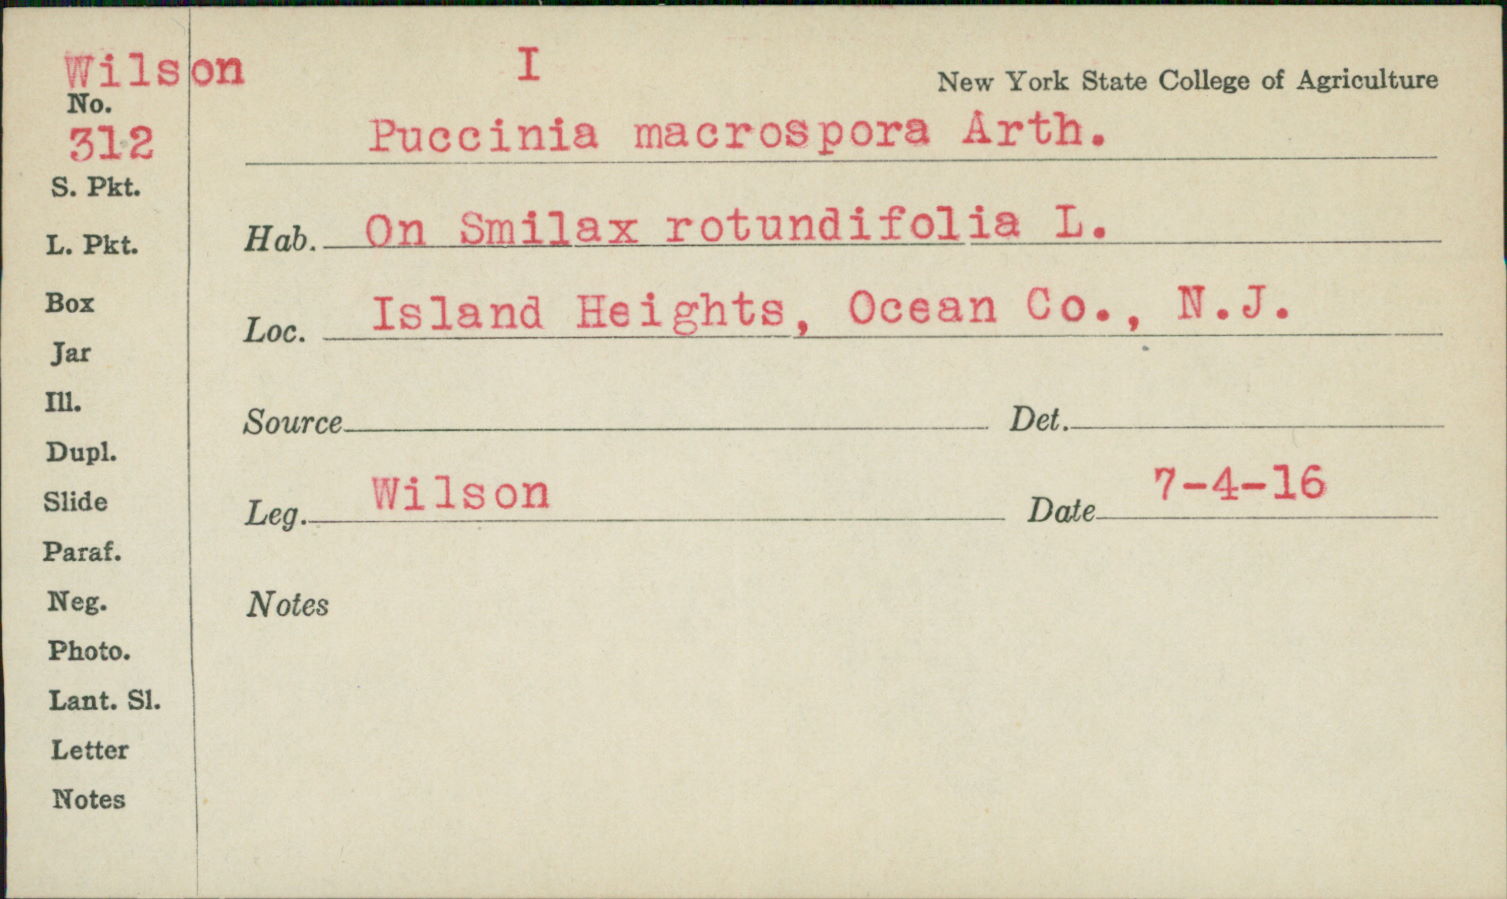 Wilson
No.
312
S. Pkt.
L. Pkt.
Box
Jar
Ill.
Dupl.
Slide
Paraf.
Neg.
Photo.
Lant. Sl.
Letter
Notes
I
New York State College of Agriculture
Puccinia macrospora Arth.
Hab. On Smilax rotundifolia L.
Loc. Island Heights, Ocean Co., N.J.
Source Det.
Leg. Wilson Date 7-4-16
Notes